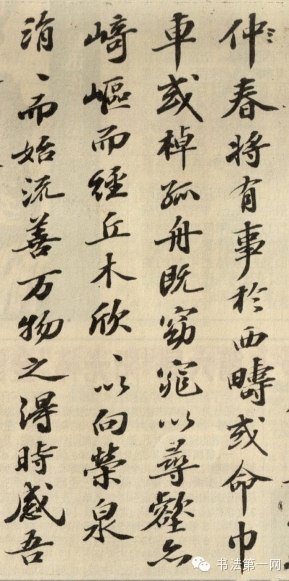 仲春将有事於西疇或命巾
車或棹孤舟既窈窕以尋壑亦
崎嶇而經丘木欣〻以向榮泉
涓〻而始流善万物之得時感吾
书法第一网